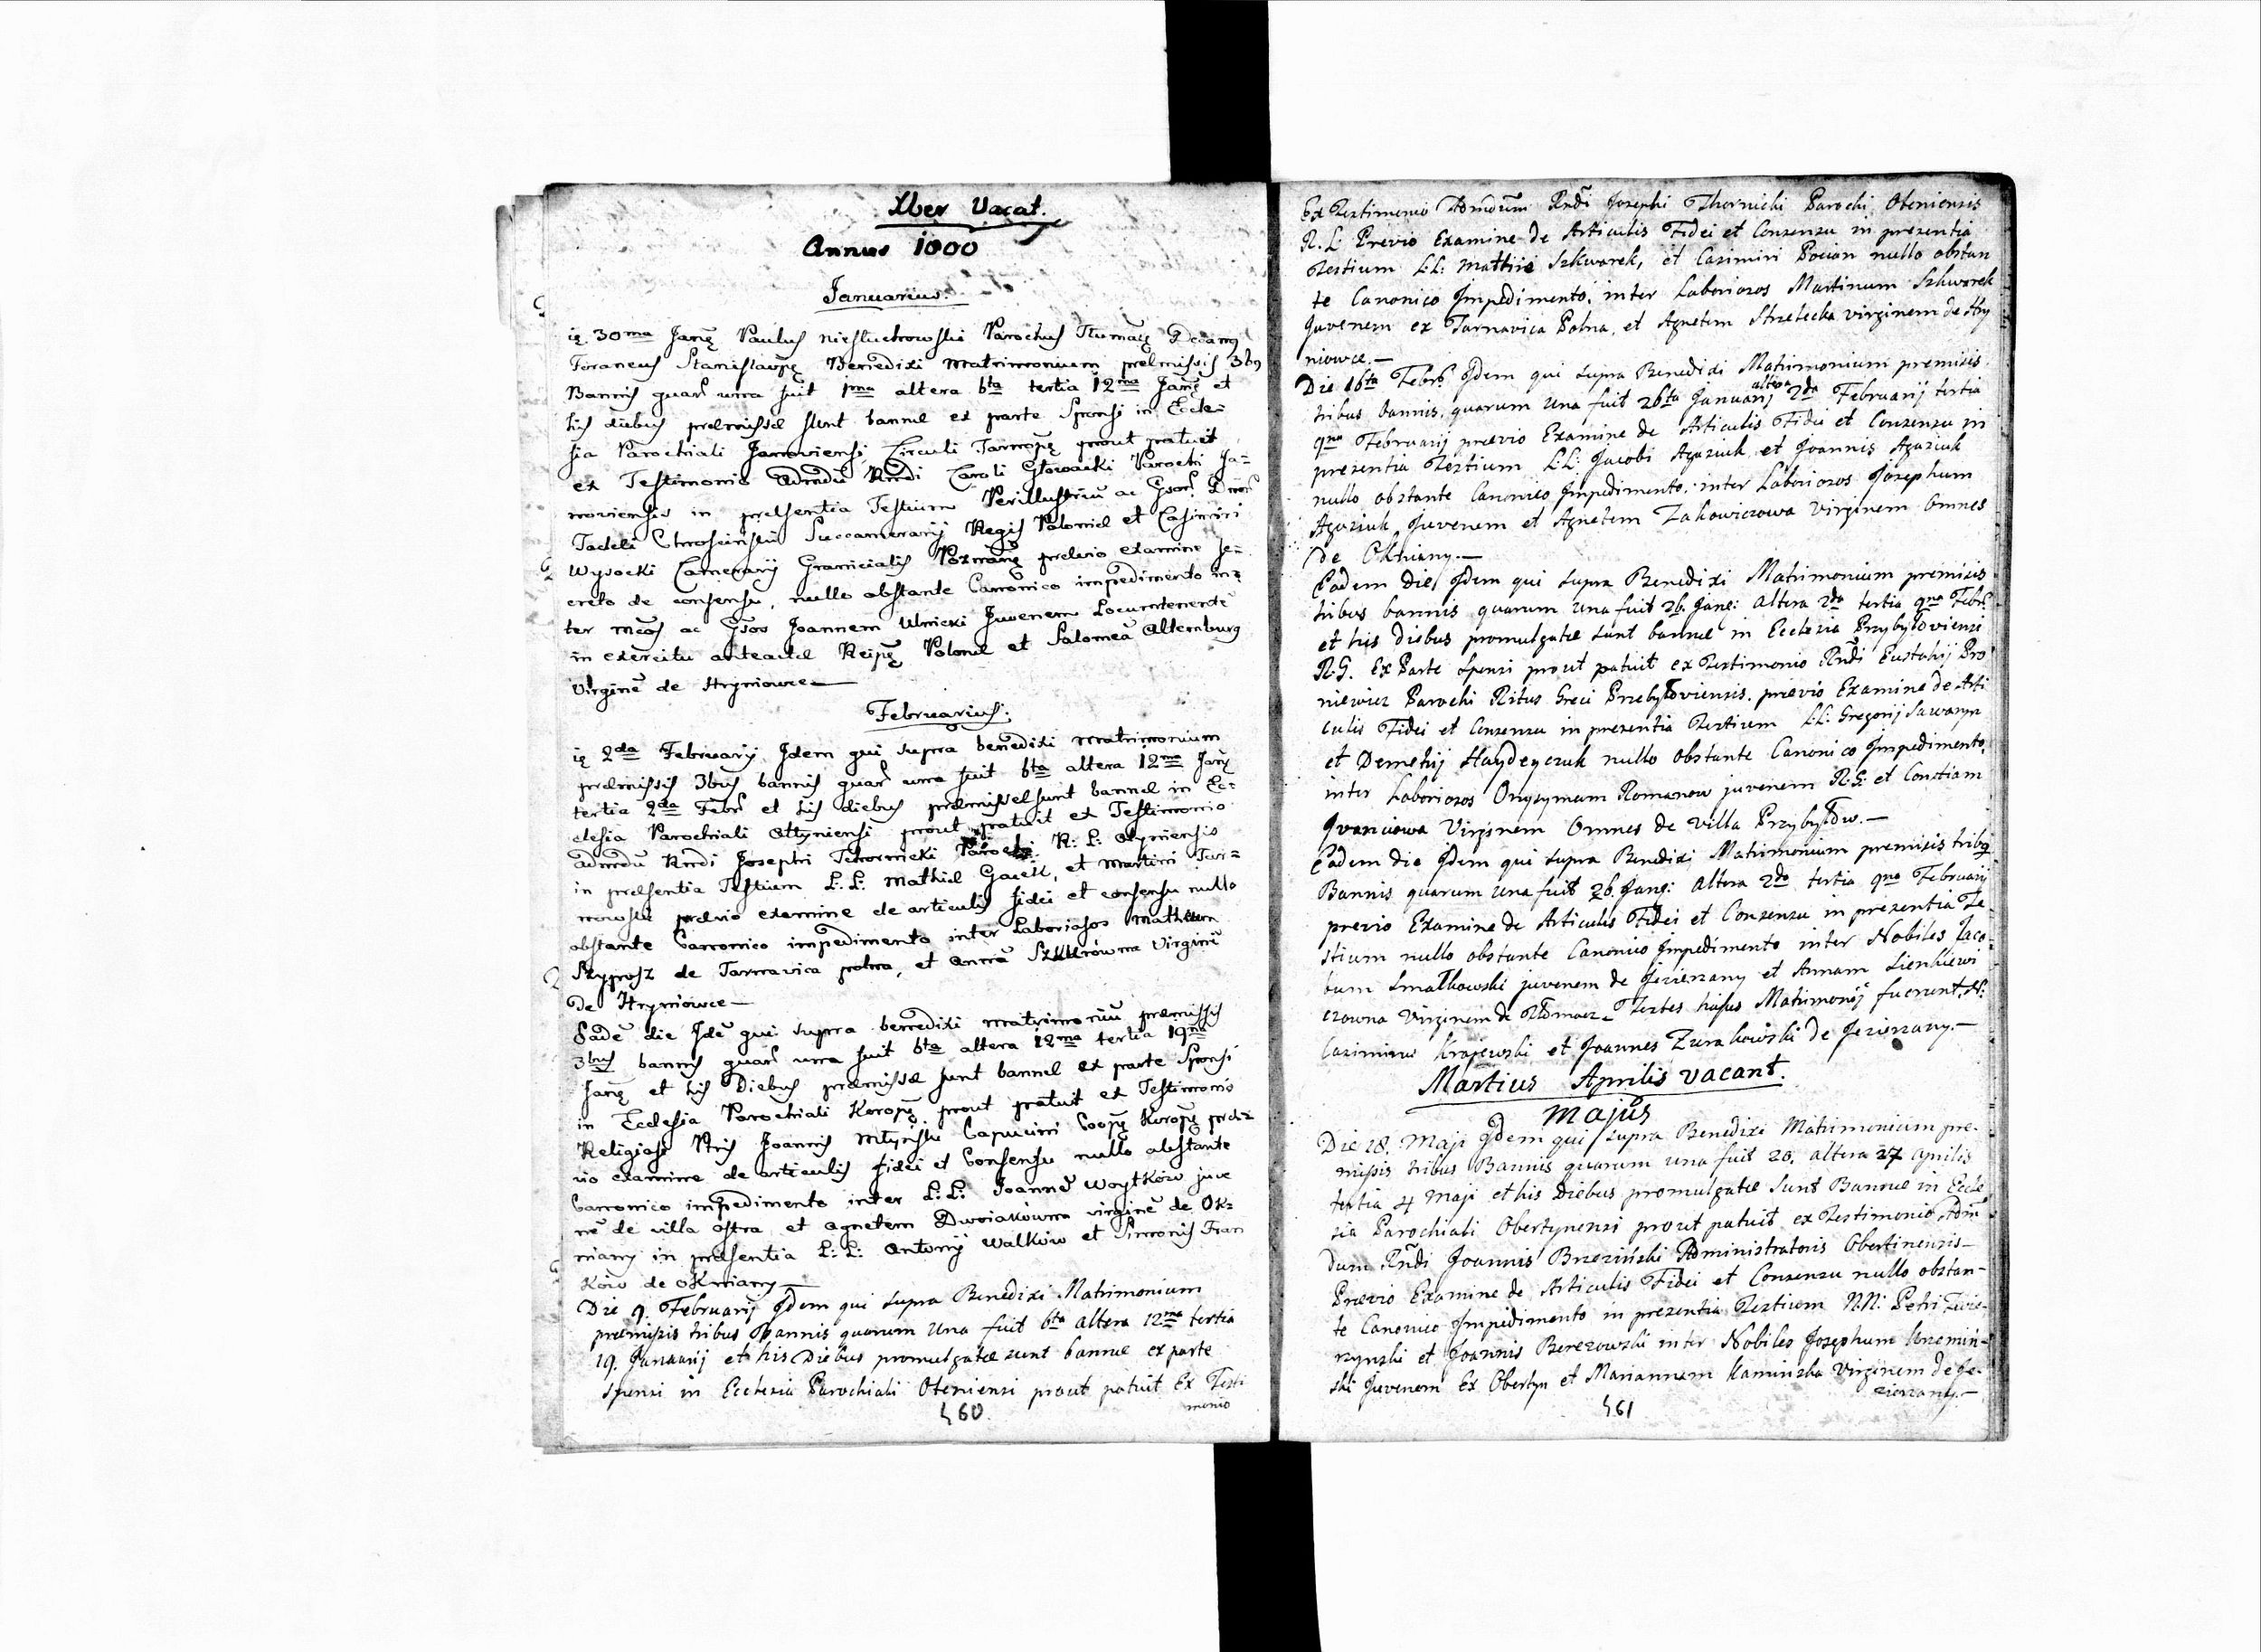 Xber Vacat.
Annus 1000
Januarius.
30ma Janę Paulus Parochus Tłumacę
Foraneus Stanislaopę Benedixi Matrimonium prælmissis 3bq
Bannis quar una fuit 1ma altera 6ta tertia 12ma Janę et
his diebus præmissæ sunt bannæ ex parte Sponsi in Eccle-
sia Parochiali Janoviensi Circuli Tarnopę prout patuit
ex Testimonio Admdū Rndi Caroli Głowacki Parochi Ja=
noviensis in præsentia Testium Perillustriū ac Gsor
Tadei Succamerarij Regis Poloniæ et Casimiri
Wysocki Camerarij Granicialis Poznanę prævio examine Se=
creto de consensu, nullo obstante Canonico impedimento in=
ter ac Gsos Joannem Ulnicki Juvenem Locumtenentē
in exercitu anteactæ Reipę Polonæ et Salomeā Alternburg
Virginē de Hryniowce—
Februarius:
2da February Idem qui supra benedixi matrimonium
præmissis 3bus bannis quar una fuit 6ta altera 12ma Janę
tertia 2da Febr et his diebus præmissæ sunt bannæ in Ec=
clesia Parochiali Ottyniensi prout patuit ex Testimonio
admdū Rndi Josephi Tchornicki Parochi R: L: Otyniensis
in præsentia Testium L: L: Mathiæ Gacek, et Martini Tur=
nowski prævio examine de articulis fidei et consensu nullo
obstante Canonico impedimento inter Laboriosos Mathæum
Szyposz de Tarnavica polna, et Annā Virginē
De Hryniowce—
Eadē die Idē qui supra benedixi matrimoniū præmissis
3bus bannis quar una fuit 6ta altera 12ma tertia 19na
Janę et his Diebus præmissæ sunt bannæ ex parte Sponsi
in Ecclesia Parochiali Koropę prout patuit ex Testimonio
Religiosi Ptris Joannis Młyński Capucini Coopę Koropę præ=
vio examine de articulis fidei et Consensu nullo obstante
Canonico impedimento inter L: L: Joannē Woytków juve
nē de villa Ostra et Agnetem Dwoiakówna virginē de Ok=
niany in præsentia L: L: Antonij Walków et Simonis Fran
ków de Okniany—
Die 9. Februarij Idem qui supra Benedixi Matrimonium
præmissis tribus Bannis quarum una fuit 6ta altera 12ma tertia
19. Januarij et his Diebus promulgatæ sunt bannæ ex parte
Sponsi in Ecclesia Parochiali Oteniensi prout patuit Ex Testi
monio
460.
Ex Testimonio Admdum Rndi Josephi Thornicki Parochi Oteniensis
R. L. Previo Examine de Articulis Fidei et Consensu in presentia
Testium L.L: Mattiæ Szkwarek, et Casimiri Bocian nullo obstan
te Canonico Impedimento, inter Laboriosos Martinum Szkwarek
Juvenem ex Tarnavica Polna, et Agnetem Strzelecka virginem de Hry
niowce.—
Die 16ta Febr Idem qui supra Benedixi Matrimonium premisis
tribus bannis, quarum una fuit 26ta Januarij altera 2da Februarij tertia
9na Februarij prævio Examine de Articulis Fidei et Consensu in
presentia Testium L.L: Jacobi Agaziuk et Joannis Agaziuk
nullo obstante Canonico Impedimento, inter Laboriosos Josephum
Agaziuk Juvenem et Agnetem Zakowiczowa Virginem Omnes
de Okniany.—
Eadem Die, Idem qui supra Benedixi Matrimonium premisis
tribus bannis quarum una fuit 26. Janę: altera 2da tertia 9na Febr
et his Diebus promulgatæ sunt bannæ in Ecclesia Przybyłoviensi
R.G. Ex Parte Sponsi prout patuit ex Testimonio Rndi Eustahij Pro
niewicz Parochi Ritus Greci Przebyłoviensis, prævio Examine de Arti
culis Fidei et Consensu in presentia Testium L.L: Gregorij Sawaryn
et Demetrij Haydeyczuk nullo obstante Canonico Impedimento,
inter Laboriosos Onysymum Romanow juvenem R.G. et Constiam
Ivanciowa Virginem Omnes de villa Przybyłów.—
Eadem die Idem qui supra Benedixi Matrimonium premisis tribq
Bannis quarum una fuit 26. Janę: altera 2da tertia 9na February
previo Examine de Articulis Fidei et Consensu in presentia Te
stium nullo obstante Canonico Impedimento inter Nobiles Jaco
bum Smalkowski juvenem de Jezierzany et Annam Sienkiewi
czowna Virginem de Tłomacz. Testes hujus Matrimonij fuerunt N:
Casimirus Krajewski et Joannes Zurakowski de Jezierzany.—
Martius Aprilis vacant.
Majus
Die 18. Maji Idem qui supra Benedixi Matrimonium pre-
misis tribus Bannis quarum una fuit 20. altera 27 Aprilis
tertia 4 Maji et his Diebus promulgatæ sunt Bannæ in Eccle
sia Parochiali Obertynensi prout patuit ex Testimonio Adm
dum Rndi Joannis Brzeziński Administratoris Obertinensis—
Prævio Examine de Articulis Fidei et Consensu nullo obstan-
te Canonico Impedimento in presentia Testium N.N: Petri
et Joannis Berezowski inter Nobiles Josephum Krzemiń=
ski Juvenem Ex Obertyn et Mariannam Kaminska Virginem de Je-
zierzany.—
461